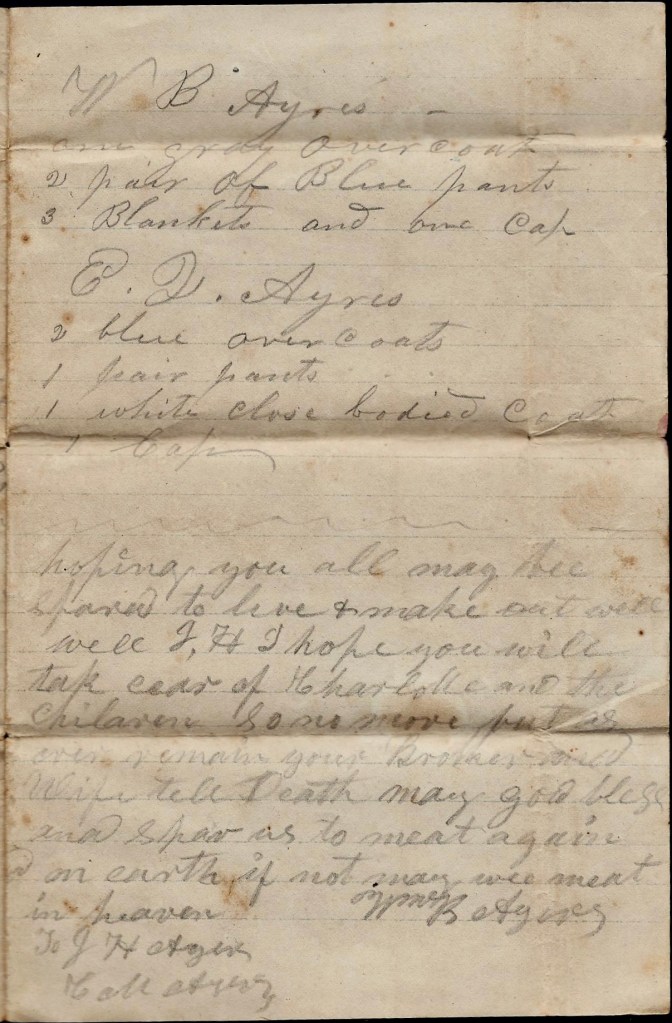 W B Ayres
one gray over coat
2 pair of Blue pants
3 Blankets and one Cap
E. D. Ayres
2 blue over coats
1 pair pants
1 white close bodied Coat
1 Cap
hoping you all may bee
spared to live & make out well
well J, H I hope you will
tak cear of Charlotte and the
Children so no more but as
ever remain your Brother and
Wife tell Death may god bless
and spar us to meat again
on earth if not may wee meat
in heaven B Ayers
To J H Ayers
C M Ayers